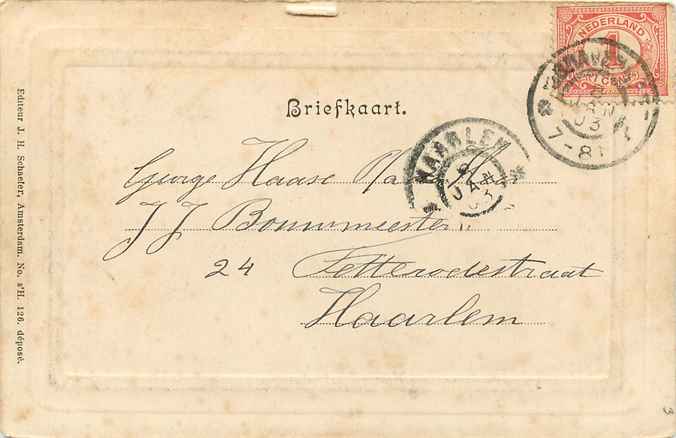 NEDERLAND
1
CENT
7-8
Briefkaart.
HAARLEM
JAN
03
George Haase
J J Bouwmeester
24 Tetterodestraat
Haarlem
Editeur J. H. Schaefer, Amsterdam. No. s'H. 126. déposé.